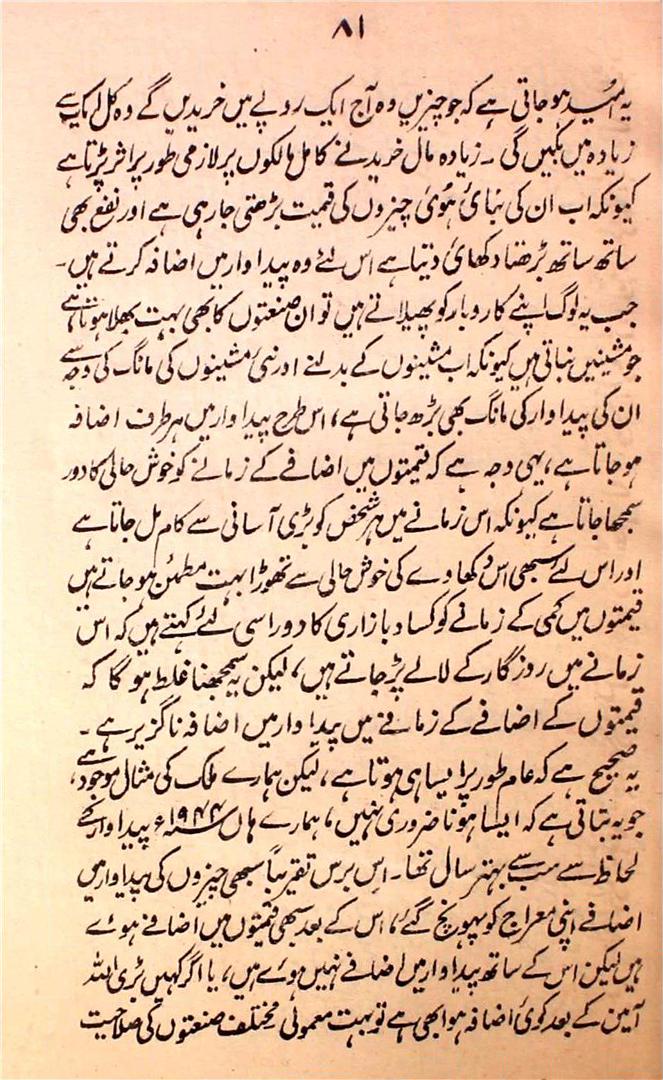 ۸۱
یہ امید ہو جاتی ہے کہ جو چیزیں وہ آج ایک روپے میں خریدیں گے وہ کل ایک سے
زیادہ میں بکیں گی۔ زیادہ مال خریدنے کا مل مالکوں پر لازمی طور پر اثر پڑتا ہے
کیونکہ اب ان کی بنائی ہوئی چیزوں کی قمیت بڑھتی جا رہی ہے اور نفع بھی
ساتھ ساتھ بڑھتا دکھائی دیتا ہے اس لئے وہ پیداوار میں اضافہ کرتے ہیں۔
جب یہ لوگ اپنے کاروبار کو پھیلاتے ہیں تو ان صنعتوں کا بھی بہت بھلا ہوتا ہے
جو مشینیں بناتی ہیں کیونکہ اب مشینوں کے بدلنے اور نئی مشینوں کی مانگ کی وجہ سے
ان کی پیداوار کی مانگ بھی بڑھ جاتی ہے، اس طرح پیداوار میں ہر طرف اضافہ
ہو جاتا ہے، یہی وجہ ہے کہ قیمتوں میں اضافے کے زمانے کو خوش حالی کا دور
سمجھا جاتا ہے کیونکہ اس زمانے میں ہر شخص کو بڑی آسانی سے کام مل جاتا ہے
اور اس لئے سبھی اس دکھاوے کی خوش حالی سے تھوڑا بہت مطمئن ہو جاتے ہیں
قیمتوں میں کمی کے زمانے کو کساد بازاری کا دور اسی لئے کہتے ہیں کہ اس
زمانے میں روزگار کے لالے پڑ جاتے ہیں، لیکن یہ سمجھنا غلط ہو گا کہ
قیمتوں کے اضافے کے زمانے میں پیداوار میں اضافہ ناگزیر ہے۔
یہ صحیح ہے کہ عام طور پر ایسا ہی ہوتا ہے، لیکن ہمارے ملک کی مثال موجود ہے،
جو یہ بتاتی ہے کہ ایسا ہونا ضروری نہیں، ہمارے ہاں ۱۹۴۴ء پیداوار کے
لحاظ سے سب سے بہتر سال تھا۔ اس برس تقریباً سبھی چیزوں کی پیداوار میں
اضافے اپنی معراج کو پہونچ گئے، اس کے بعد سبھی قیمتوں میں اضافے ہوئے
ہیں لیکن اس کے ساتھ پیداوار میں اضافے نہیں ہوئے ہیں، یا اگر کہیں بڑی اللہ
آمین کے بعد کوئی اضافہ ہوا بھی ہے تو بہت معمولی مختلف صنعتوں کی صلاحیت